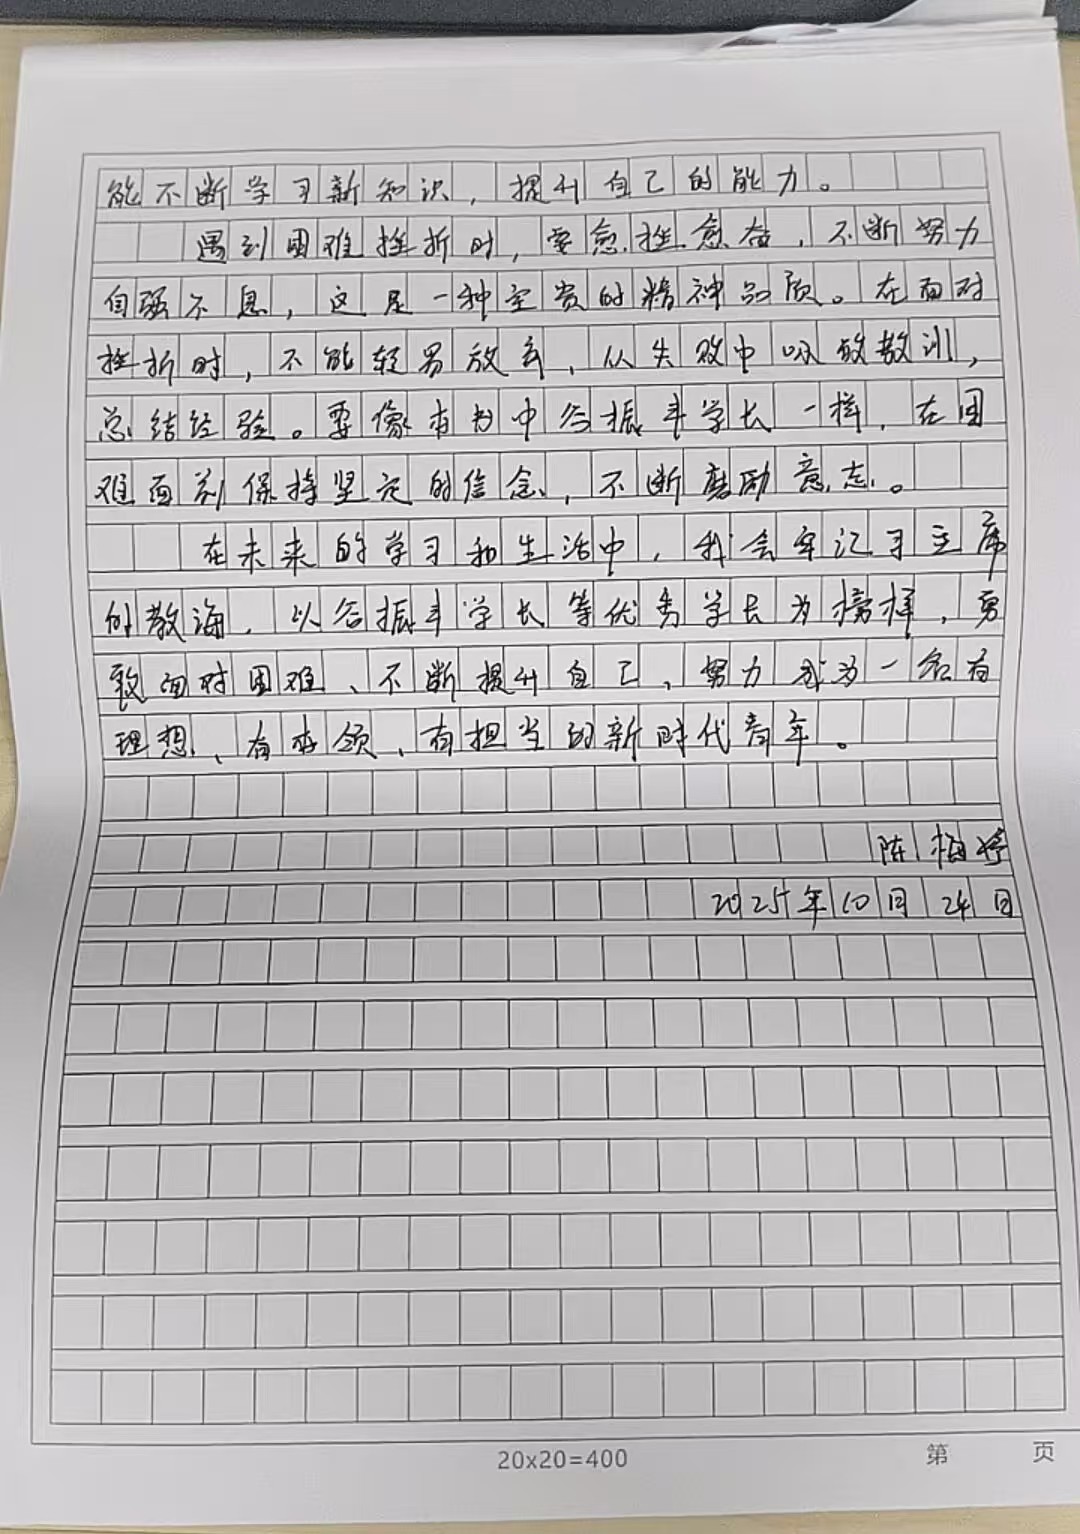 能不断学习新知识，提升自己的能力。
遇到困难挫折时，要愈挫愈奋，不断努力
自强不息，这是一种宝贵的精神品质。在面对
挫折时，不能轻易放弃，从失败中吸取教训，
总结经验。要像本书中谷振丰学长一样，在困
难面前保持坚定的信念，不断磨励意志。
在未来的学习和生活中，我会牢记习主席
的教海，以谷振丰学长等优秀学长为榜样，勇
敢面对困难、不断提升自己，努力成为一名有
理想、有本领、有担当的新时代青年。
陈梅婷
2025年10月24日
20x20=400
第 页